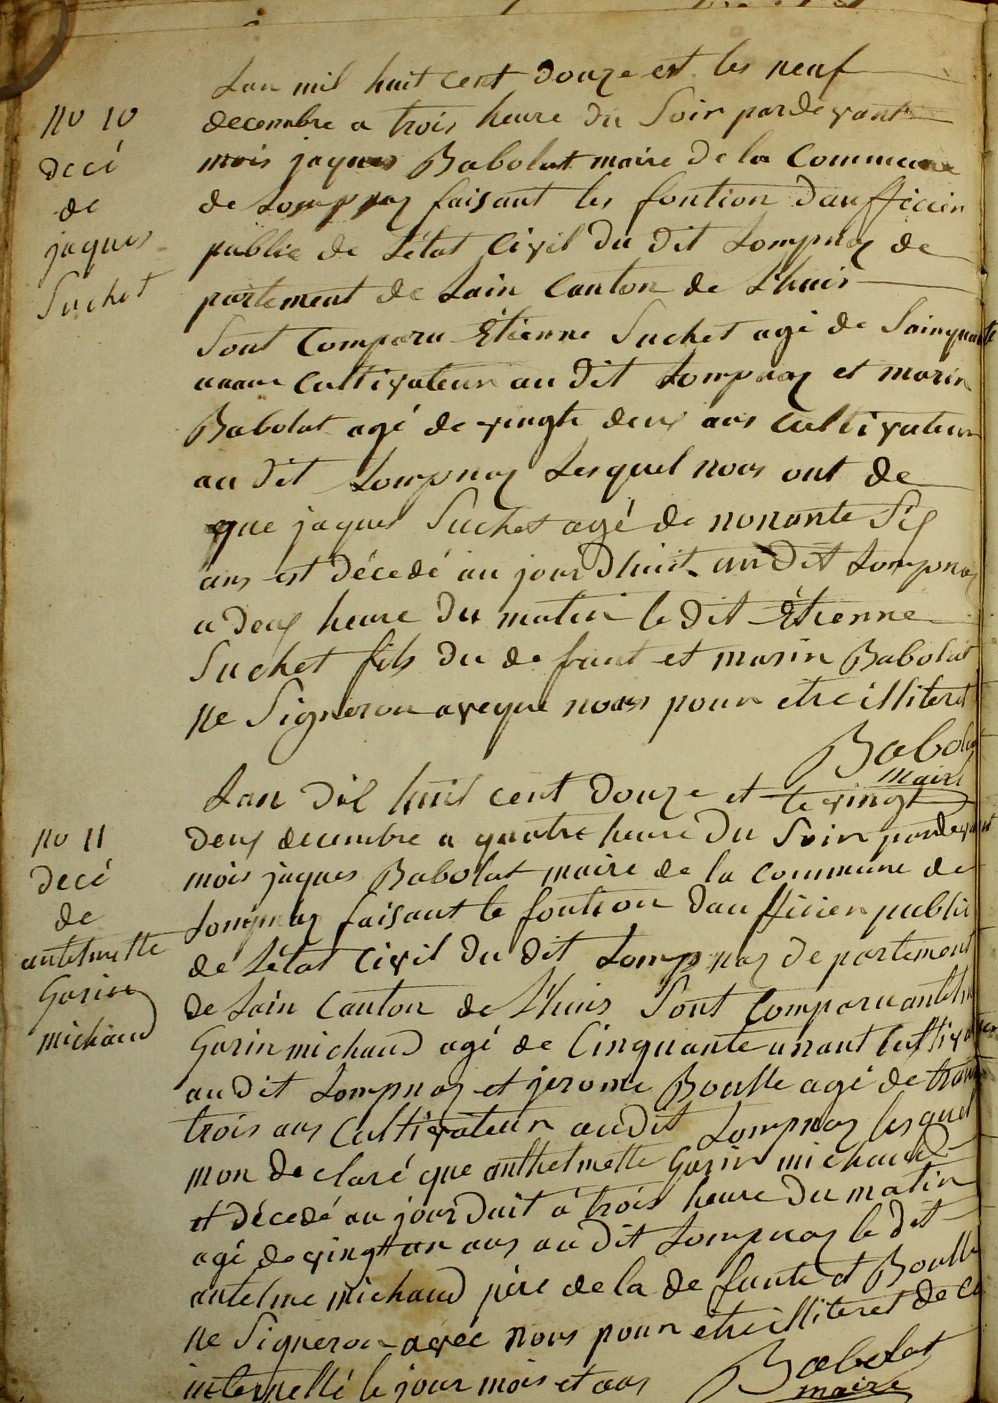 no 10
decé
de
jaques
Suchet
Lan mil huit cent douze est les neuf
decembre a trois heure du Soir pardevant
mois jaques Babolat maire de la Commune
de Lompnaz faisant les fontion daufficier
public de L'état Civil du dit Lompnaz de
partement de Lain Canton de Lhuis
Sont Comparu Étienne Suchet agé de Sainquante
unans Cultivateur au dit Lompnaz et marin
Babolat agé de vingte deux ans Cultivateur
au dit Lompnaz Lesquel nous ont de
que jaques Suchet agé de nonante Six
ans est décedé au jour Dhuit au dit Lompnaz
a deux heure du matin le dit Étienne
Suchet fils du defunt et marin Babolat
ne Signeron aveque nous pour etre illiteret
Babolat
maire
no 11
decé
de
antelmette
Garin
michaud
Lan dil huit cent douze et le vingt
deux decembre a quatre heure du Soir pardevant
mois jaques Babolat maire de la commune de
Lompnaz faisant le fontion daufficier public
de L'état Civil du dit Lompnaz departement
de Lain Canton de Lhuis Sont Comparu
Garin michaud agé de Cinquante unant
au dit Lompnaz et jerome Boulle agé de
trois ans Cultivateur audit Lompnaz lesquel
mon declaré que anthelmette Garin michaud
et décedé au jourduit à trois heure du matin
agé de vingt un ans au dit Lompnaz le dit
antelme michaud père de la defunte et Boulle
ne Signeron avec nous pour etre illiteret de ce
internellé le jour mois et ans
Babolat
maire